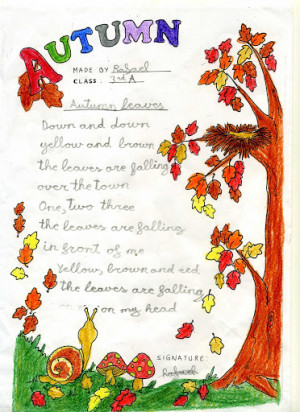 AUTUMN
MADE BY Rafael
CLASS: 3rd A
Autumn leaves
Down and down
yellow and brown
the leaves are falling
over the town
One, two three
the leaves are falling
in front of me
Yellow, brown and red
the leaves are falling
on my head
SIGNATURE:
Rafael